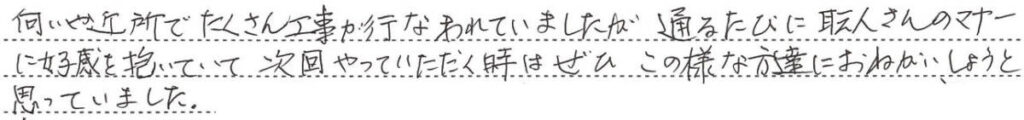 何いや近所でたくさん工事が行なわれていましたが 通るたびに 職人さんのマナー
に好感を抱いていて 次回 やっていただく時は ぜひ この様な方達におねがいしようと
思っていました。